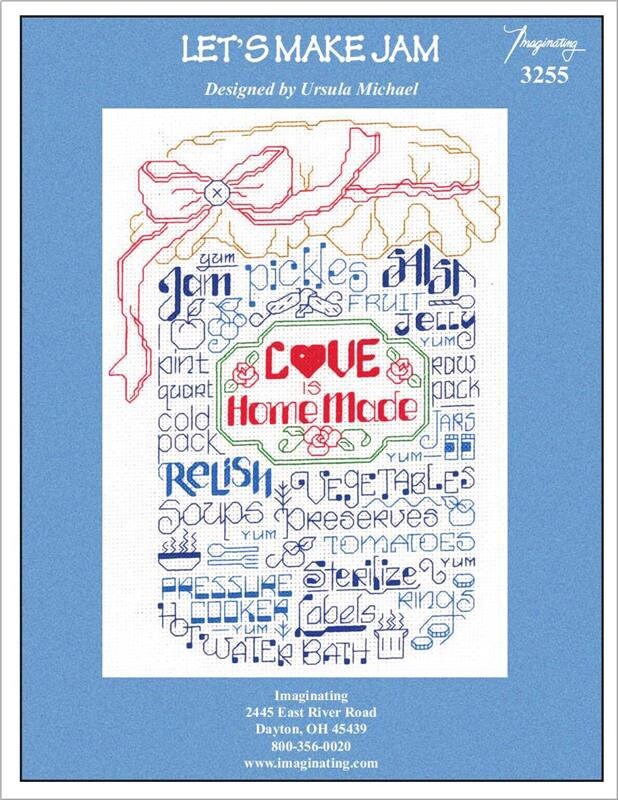 LET'S MAKE JAM
Imaginating
3255
Designed by Ursula Michael
yum
Jam
pickles
SALSA
FRUIT
JELLY
I
YUM
LOVE
IS
Home Made
pint
quart
cold
pack
RAW
pack
JARS
YUM
RELISH
VEGETABLES
Soups
PRESERVES
YUM
TOMATOES
Sterilize
YUM
PRESSURE
COOKER
Labels
RINGS
HOT
YUM
WATER BATH
Imaginating
2445 East River Road
Dayton, OH 45439
800-356-0020
www.imaginating.com